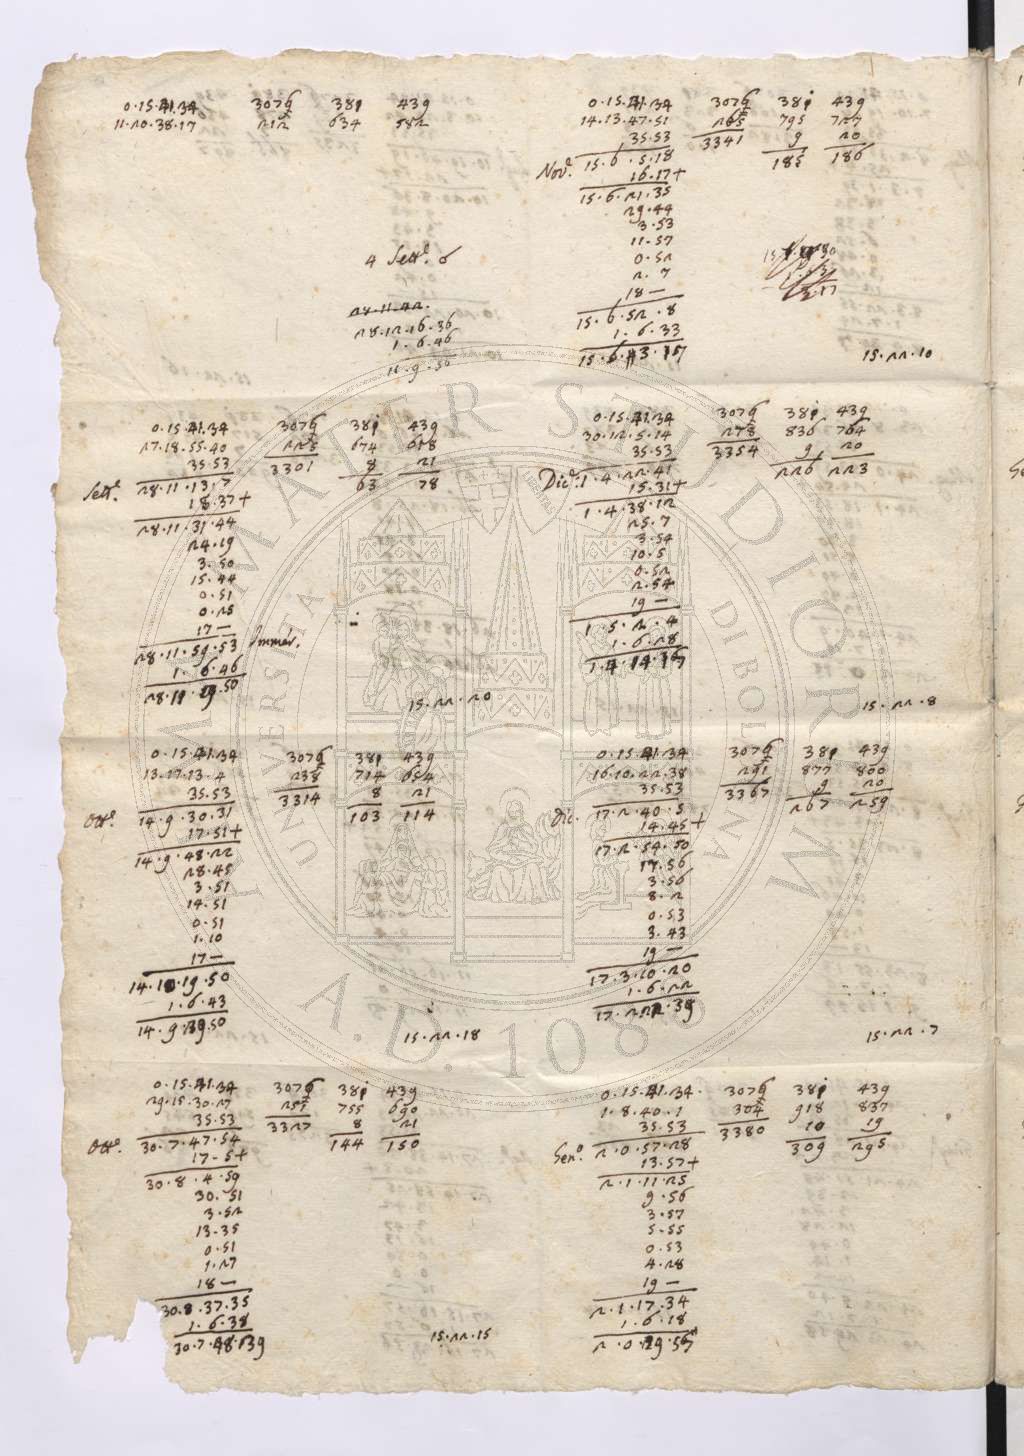 0.15.41.34 3076 381 439
11.20.38.17 212 634 582
4 Sett.e 6
28.11.42.
28.12.16.36
1.6.46
11.9.50
0.15.41.34 3076 381 439
27.18.55.40 225 674 618
35.53 3301 8 21
Sett.e 28.11.13.7 63 78
18.37+
28.11.31.44
24.19
3.50
15.44
0.51
0.25
17—
28.11.59.53
1.6.46
28.11.29.50
15.22.20
0.15.41.34 3076 381 439
13.17.13.4 238 714 654
35.53 3314 8 21
Ott.e 14.9.30.31 103 114
17.51+
14.9.48.22
28.45
3.51
14.51
0.51
1.10
17—
14.10.19.50
1.6.43
14.9.39.50
15.22.18
0.15.41.34 3076 381 439
29.15.30.27 251 755 690
35.53 3327 8 21
Ott.e 30.7.47.54 144 150
17.5+
30.8.4.59
30.51
3.52
13.35
0.51
1.27
18—
30.8.37.35
1.6.38
30.7.48.39
15.22.15
0.15.41.34 3076 381 439
14.13.47.51 265 795 727
35.53 3341 9 20
Nov.e 15.6.5.18 185 186
16.17+
15.6.21.35
29.44
3.53
11.57
0.52
2.7
18—
15.6.52.8
1.6.33
15.6.13.17
15.22.10
0.15.41.34 3076 381 439
30.12.5.14 278 836 764
35.53 3354 9 20
Dic.e 1.4.22.41 226 223
15.31+
1.4.38.12
25.7
3.54
10.5
0.52
2.54
19—
1.5.2.4
1.6.28
1.4.14.16
15.22.8
0.15.41.34 3076 381 439
16.10.22.38 291 877 800
35.53 3367 9 20
Dic. 17.2.40.5 267 259
14.45+
17.2.54.50
17.56
3.56
8.2
0.53
3.43
19—
17.3.10.20
1.6.22
17.2.22.39
15.22.7
0.15.41.34. 3076 381 439
1.8.40.1 304 918 837
35.53 3380 10 19
Gen.o 2.0.57.28 309 295
13.57+
2.1.11.25
9.56
3.57
5.55
0.53
4.28
19—
2.1.17.34
1.6.18
2.0.29.57
ALMA MATER STUDIORUM
UNIVERSITÀ DI BOLOGNA
A.D. 1088